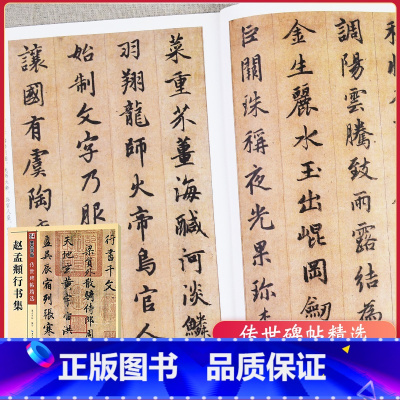 調陽雲騰致雨露結為
金生麗水玉出崐岡劔
巨闕珠稱夜光果珎
菜重芥薑海鹹河淡鱗
羽翔龍師火帝鳥官人
始制文字乃服
讓國有虞陶
赵孟頫行书集
传世碑帖精选
行書千文
梁員外散騎侍郎周
天地玄黄宇宙洪
盈昃辰宿列張寒
传世碑帖精选